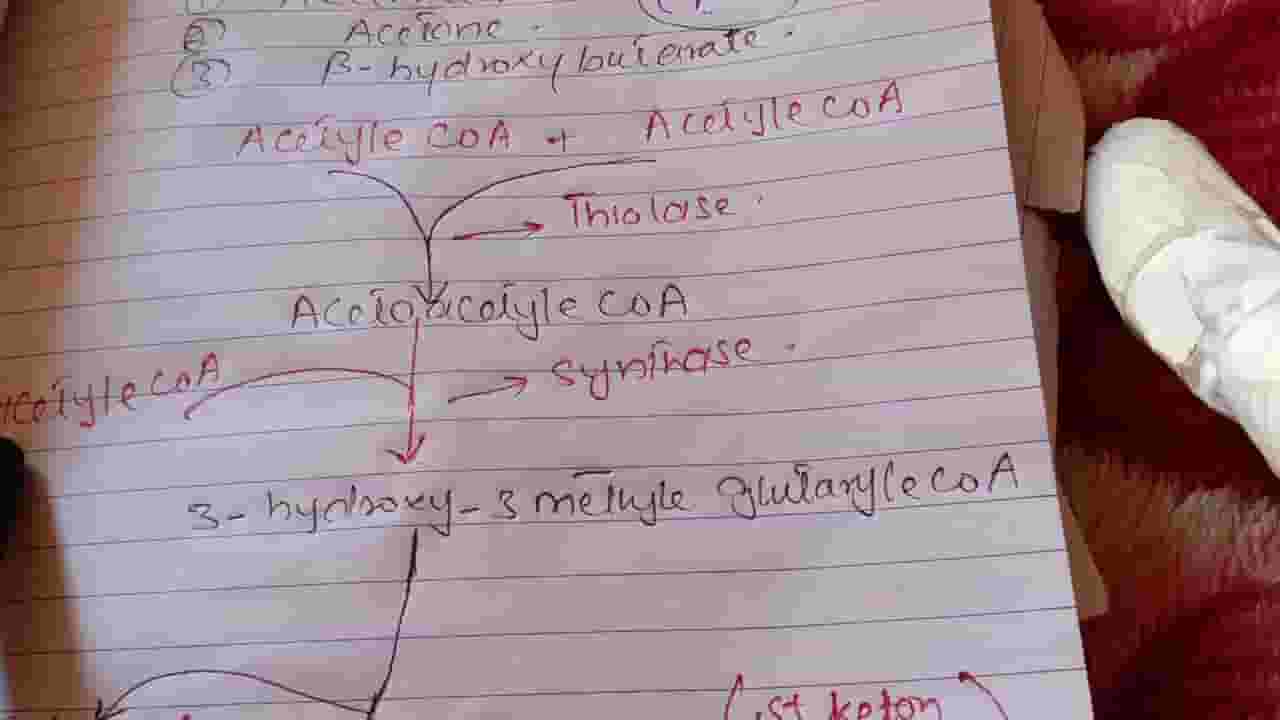 ② Acetone.
③ β-hydroxybutenate.
Acetyle CoA + Acetyle CoA
→ Thiolase.
Acetoacetyle CoA
Acetyle CoA
→ Synthase.
3-hydroxy-3 methyle glutaryle CoA
(1st keton)